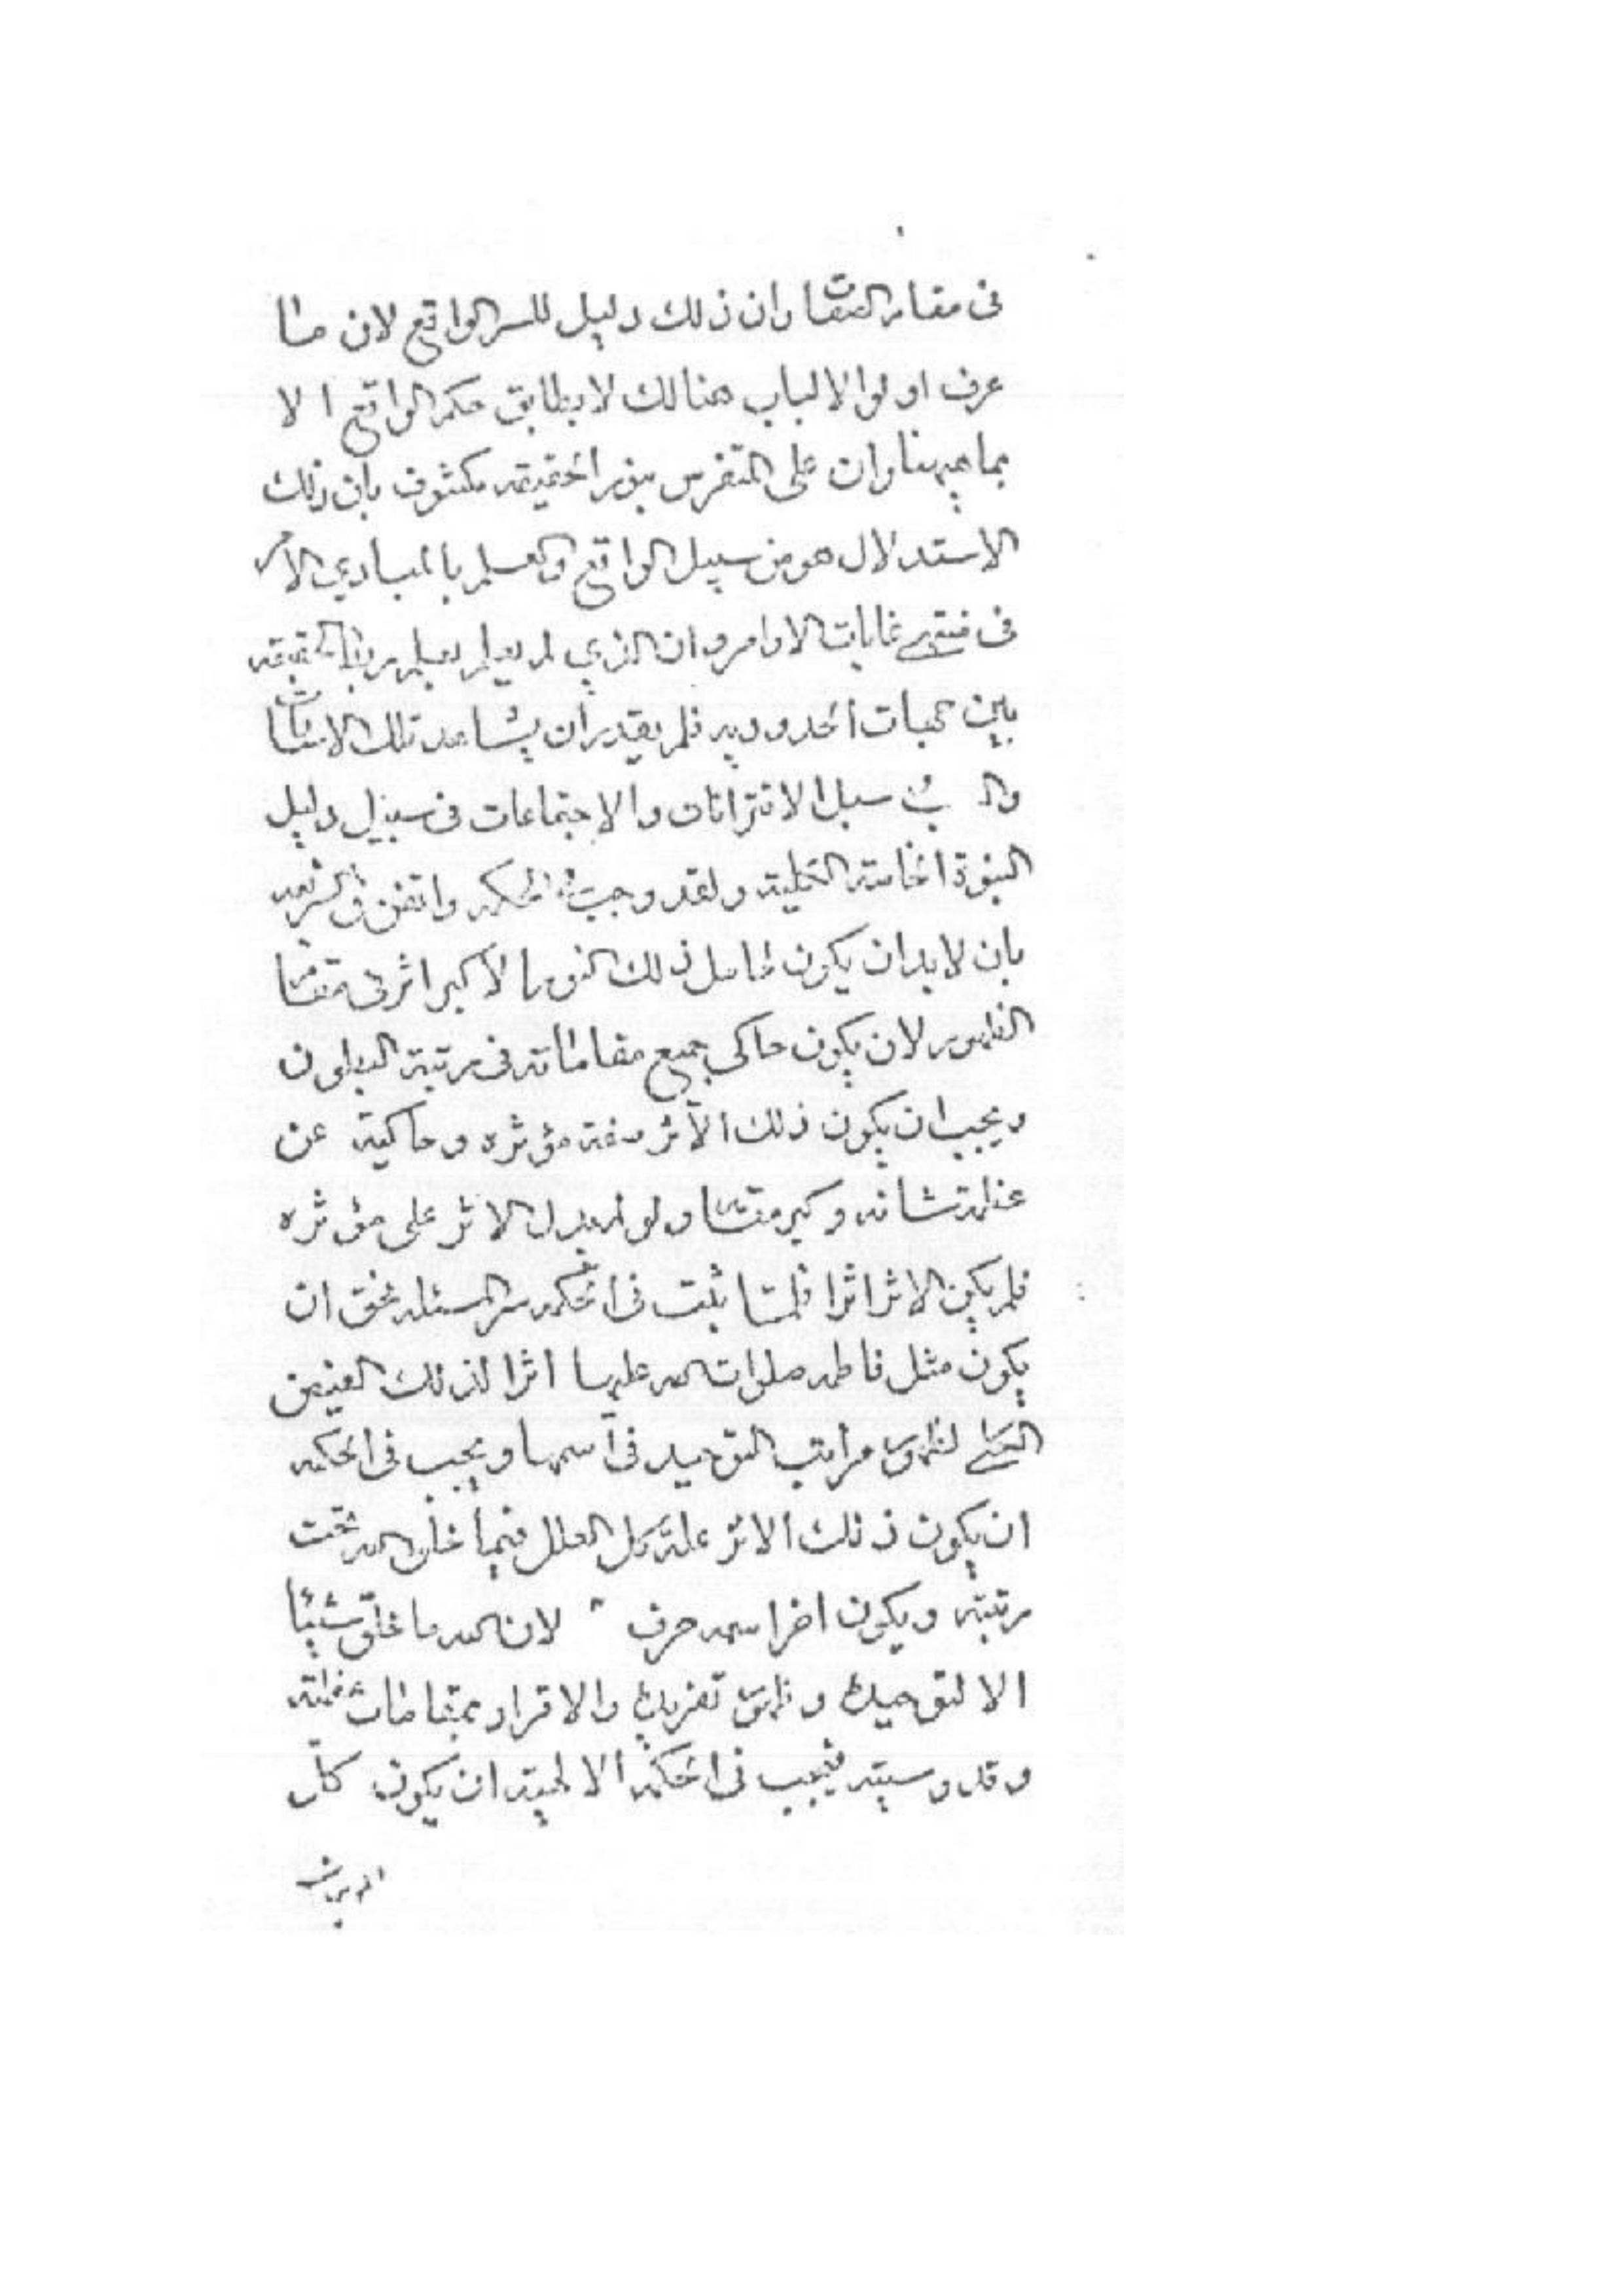 فی مقام المقامات وان ذلك دلیل للسر الواقع لان ما
عرف اولوا الالباب هنالك لا یطابق حكم الواقع الا
بما هیهنا وان علی المتفرس بنور الحقیقه مكشوف بان ذلك
الاستدلال هو من سبیل الواقع والعلم بالمبادی الامر
فی منتهی غایات الاوامر وان الذی لم یعلم بعلم الحقیقه
بین الحدودیه فلم یقدر ان یشاهد تلك الامثال
سبل الاقترانات والاجتماعات فی سبیل دلیل
النبوة الخاصة ولقد وجب فی الحكمه واتقن فی الشریعه
بان لابد ان یكون لحامل ذلك النور الاكبر اثر فی مقام
الظهور لان یكون حاكی جمیع مقاماته فی مرتبة البطون
ویجب ان یكون ذلك الاثر صفة مؤثره وحاكیة عن
عظمة شانه وكبر مقامه ولو لم یدل الاثر علی مؤثره
فلم یكن الاثر اثرا فلما ثبت فی الحكمه سر المسئله فحق ان
یكون مثل فاطمه صلوات الله علیها اثرا لذلك الفیض
لظهور مراتب التوحید فی اسمها ویجب فی الحكمه
ان یكون ذلك الاثر علة كل العلل فیما خلق الله تحت
مرتبته ویكون اخر اسمه حرف لان الله ما خلق شیئا
الا لتوحیده وظهور تفریده والاقرار بمقامات عظمته
وقدوسیته فیجب فی الحكمة الالهیة ان یكون كل